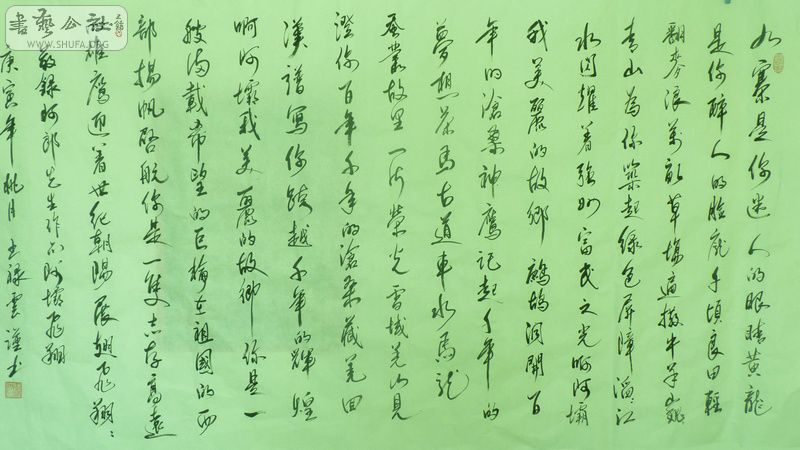 九寨是你迷人的眼睛黄龍
是你醉人的臉龐千頃良田輕
翻麥浪萬畝草場遍撒牛羊
青山為你築起綠色屏障滔滔江
水閃耀着強州富民之光啊阿壩
我美麗的故鄉 鷓鴣洞開百
年的滄桑神鷹記起千年的
夢想茶馬古道車水馬龍
蚕叢故里一派榮光雪域羌山見
證你百年千年的滄桑藏羌回
漢譜寫你跨越千年的輝煌
啊阿壩我美麗的故鄉你是一
艘滿載希望的巨輪在祖國的西
部揚帆啓航你是一隻志存高遠
的雄鷹迎着世紀朝陽展翅飛翔
敬錄阿郎先生作品阿壩飛翔
庚寅年桃月 王祿雲謹書
書藝公社
WWW.SHUFA.ORG